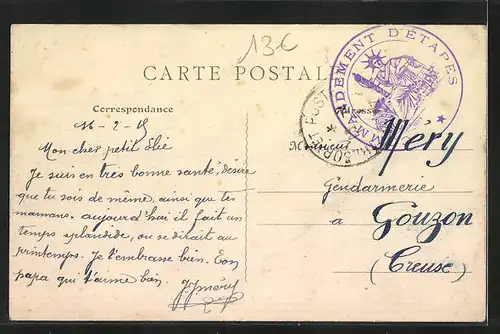 13€
CARTE POSTALE
Correspondance
Adresse
16-2-15
Mon cher petit Elie
Je suis en très bonne santé, désire
que tu sois de même, ainsi que tes
mamans. aujourd'hui il fait un
temps splendide, on se dirait au
printemps. Je t'embrasse bien. Ton
papa qui t'aime bien.
JJMéry
Monsieur Méry
Gendarmerie
à Gouzon
(Creuse)
MMANDEMENT D'ÉTAPES